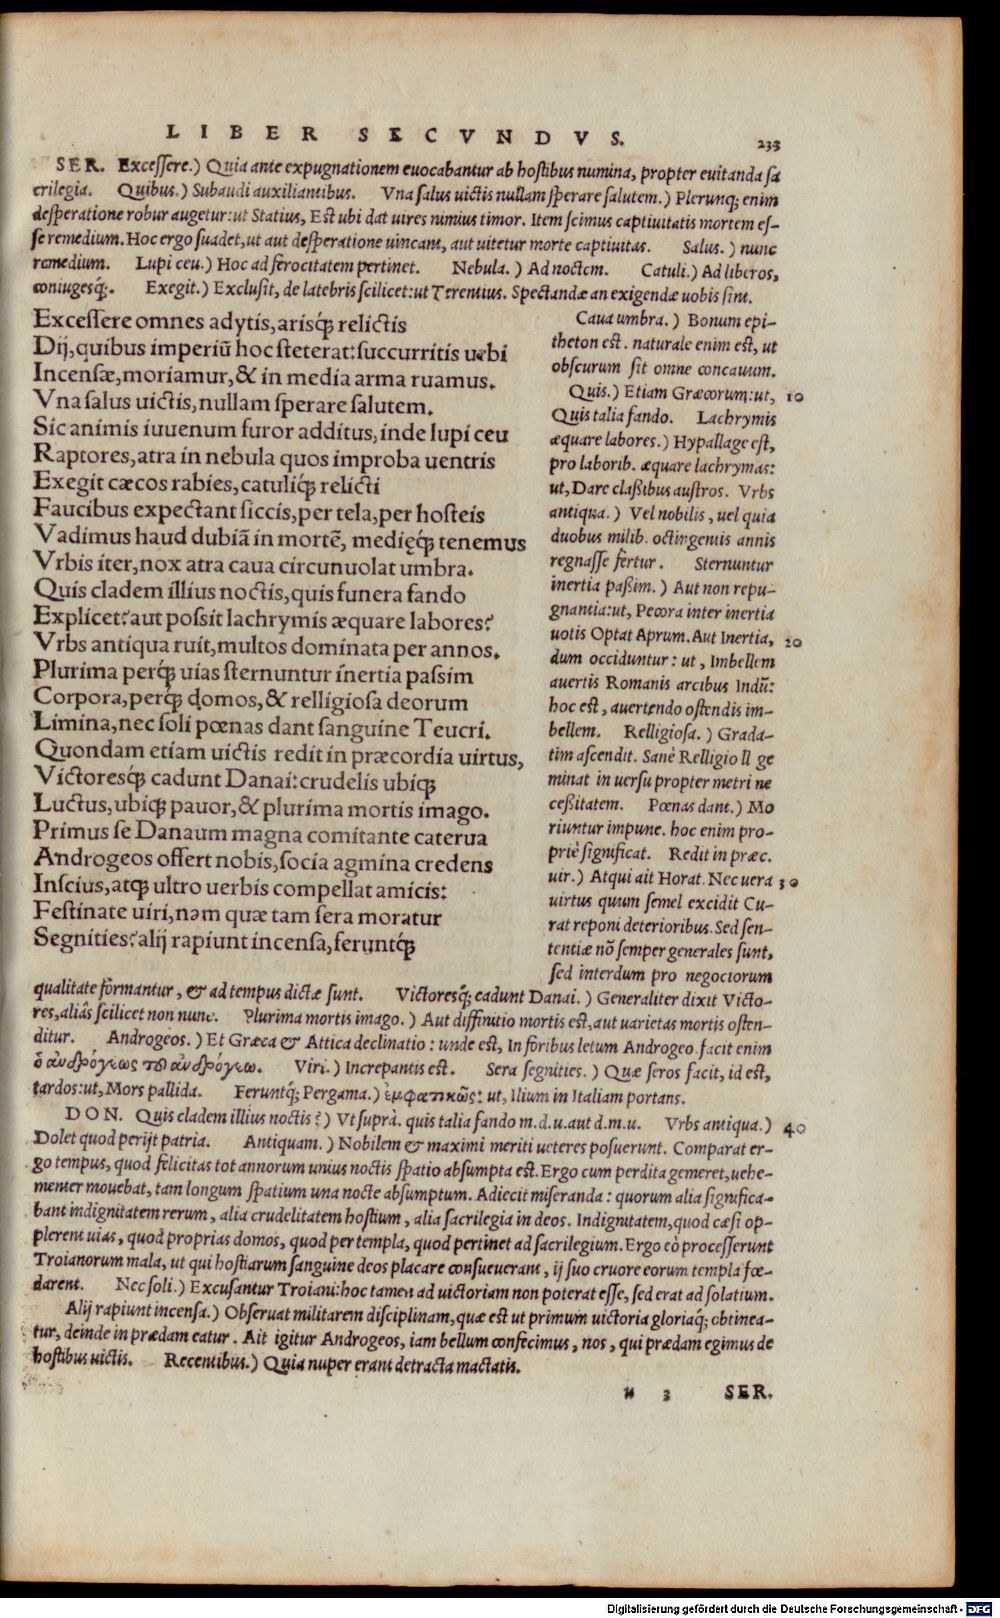 LIBER SECVNDVS. 233
SER. Excessere.) Quia ante expugnationem euocabantur ab hostibus numina, propter euitanda sa
crilegia. Quibus.) Subaudi auxiliantibus. Vna salus uictis nullam sperare salutem.) Plerunq; enim
desperatione robur augetur: ut Statius, Est ubi dat uires nimius timor. Item scimus captiuitatis mortem es-
se remedium. Hoc ergo suadet, ut aut desperatione uincant, aut uitetur morte captiuitas. Salus.) nunc
remedium. Lupi ceu.) Hoc ad ferocitatem pertinet. Nebula.) Ad noctem. Catuli.) Ad liberos,
coniugesq́;. Exegit.) Exclusit, de latebris scilicet: ut Terentius. Spectandæ an exigendæ uobis sint.
Excessere omnes adytis, arisq́; relictis
Dij, quibus imperiũ hoc steterat: succurritis urbi
Incensæ, moriamur, & in media arma ruamus.
Vna salus uictis, nullam sperare salutem.
Sic animis iuuenum furor additus, inde lupi ceu
Raptores, atra in nebula quos improba uentris
Exegit cæcos rabies, catuliq́; relicti
Faucibus expectant siccis, per tela, per hosteis
Vadimus haud dubiã in mortẽ, medięq́; tenemus
Vrbis iter, nox atra caua circunuolat umbra.
Quis cladem illius noctis, quis funera fando
Explicet? aut possit lachrymis æquare labores?
Vrbs antiqua ruit, multos dominata per annos.
Plurima perq́; uias sternuntur inertia passim
Corpora, perq́; domos, & relligiosa deorum
Limina, nec soli pœnas dant sanguine Teucri.
Quondam etiam uictis redit in præcordia uirtus,
Victoresq́; cadunt Danai: crudelis ubiq;
Luctus, ubiq; pauor, & plurima mortis imago.
Primus se Danaum magna comitante caterua
Androgeos offert nobis, socia agmina credens
Inscius, atq; ultro uerbis compellat amicis:
Festinate uiri, nam quæ tam sera moratur
Segnities? alij rapiunt incensa, feruntq́;
Caua umbra.) Bonum epi-
theton est. naturale enim est, ut
obscurum sit omne concauum.
Quis.) Etiam Græcorum: ut, 10
Quis talia fando. Lachrymis
æquare labores.) Hypallage est,
pro laborib. æquare lachrymas:
ut, Dare claßibus austros. Vrbs
antiqua.) Vel nobilis, uel quia
duobus milib. octingentis annis
regnasse fertur. Sternuntur
inertia paßim.) Aut non repu-
gnantia: ut, Pecora inter inertia
uotis Optat Aprum. Aut Inertia, 20
dum occiduntur: ut, Imbellem
auertis Romanis arcibus Indũ:
hoc est, auertendo ostendis im-
bellem. Relligiosa.) Grada-
tim ascendit. Sanè Relligio ll ge
minat in uersu propter metri ne
ceßitatem. Pœnas dant.) Mo
riuntur impune. hoc enim pro-
priè significat. Redit in præc.
uir.) Atqui ait Horat. Nec uera 30
uirtus quum semel excidit Cu-
rat reponi deterioribus. Sed sen-
tentiæ nõ semper generales sunt,
sed interdum pro negociorum
qualitate formantur, & ad tempus dictæ sunt. Victoresq́; cadunt Danai.) Generaliter dixit Victo-
res, aliâs scilicet non nunc. Plurima mortis imago.) Aut diffinitio mortis est, aut uarietas mortis osten-
ditur. Androgeos.) Et Græca & Attica declinatio: unde est, In foribus letum Androgeo. facit enim
ὁ ἀνδρόγεως τοῦ ἀνδρόγεω. Viri.) Increpantis est. Sera segnities.) Quæ seros facit, id est,
tardos: ut, Mors pallida. Feruntq́; Pergama.) ἐμφατικῶς: ut, Ilium in Italiam portans.
DON. Quis cladem illius noctis?) Vt suprà. quis talia fando m.d.u. aut d.m.u. Vrbs antiqua.) 40
Dolet quod perijt patria. Antiquam.) Nobilem & maximi meriti ueteres posuerunt. Comparat er-
go tempus, quod felicitas tot annorum unius noctis spatio absumpta est. Ergo cum perdita gemeret, uehe-
menter mouebat, tam longum spatium una nocte absumptum. Adiecit miseranda: quorum alia significa-
bant indignitatem rerum, alia crudelitatem hostium, alia sacrilegia in deos. Indignitatem, quod cæsi op-
plerent uias, quod proprias domos, quod per templa, quod pertinet ad sacrilegium. Ergo eò processerunt
Troianorum mala, ut qui hostiarum sanguine deos placare consueuerant, ij suo cruore eorum templa fœ-
darent. Nec soli.) Excusantur Troiani: hoc tamen ad uictoriam non poterat esse, sed erat ad solatium.
Alij rapiunt incensa.) Obseruat militarem disciplinam, quæ est ut primum uictoria gloriaq́; obtinea-
tur, deinde in prædam eatur. Ait igitur Androgeos, iam bellum confecimus, nos, qui prædam egimus de
hostibus uictis. Recentibus.) Quia nuper erant detracta mactatis.
n 3 SER.
Digitalisierung gefördert durch die Deutsche Forschungsgemeinschaft - DFG